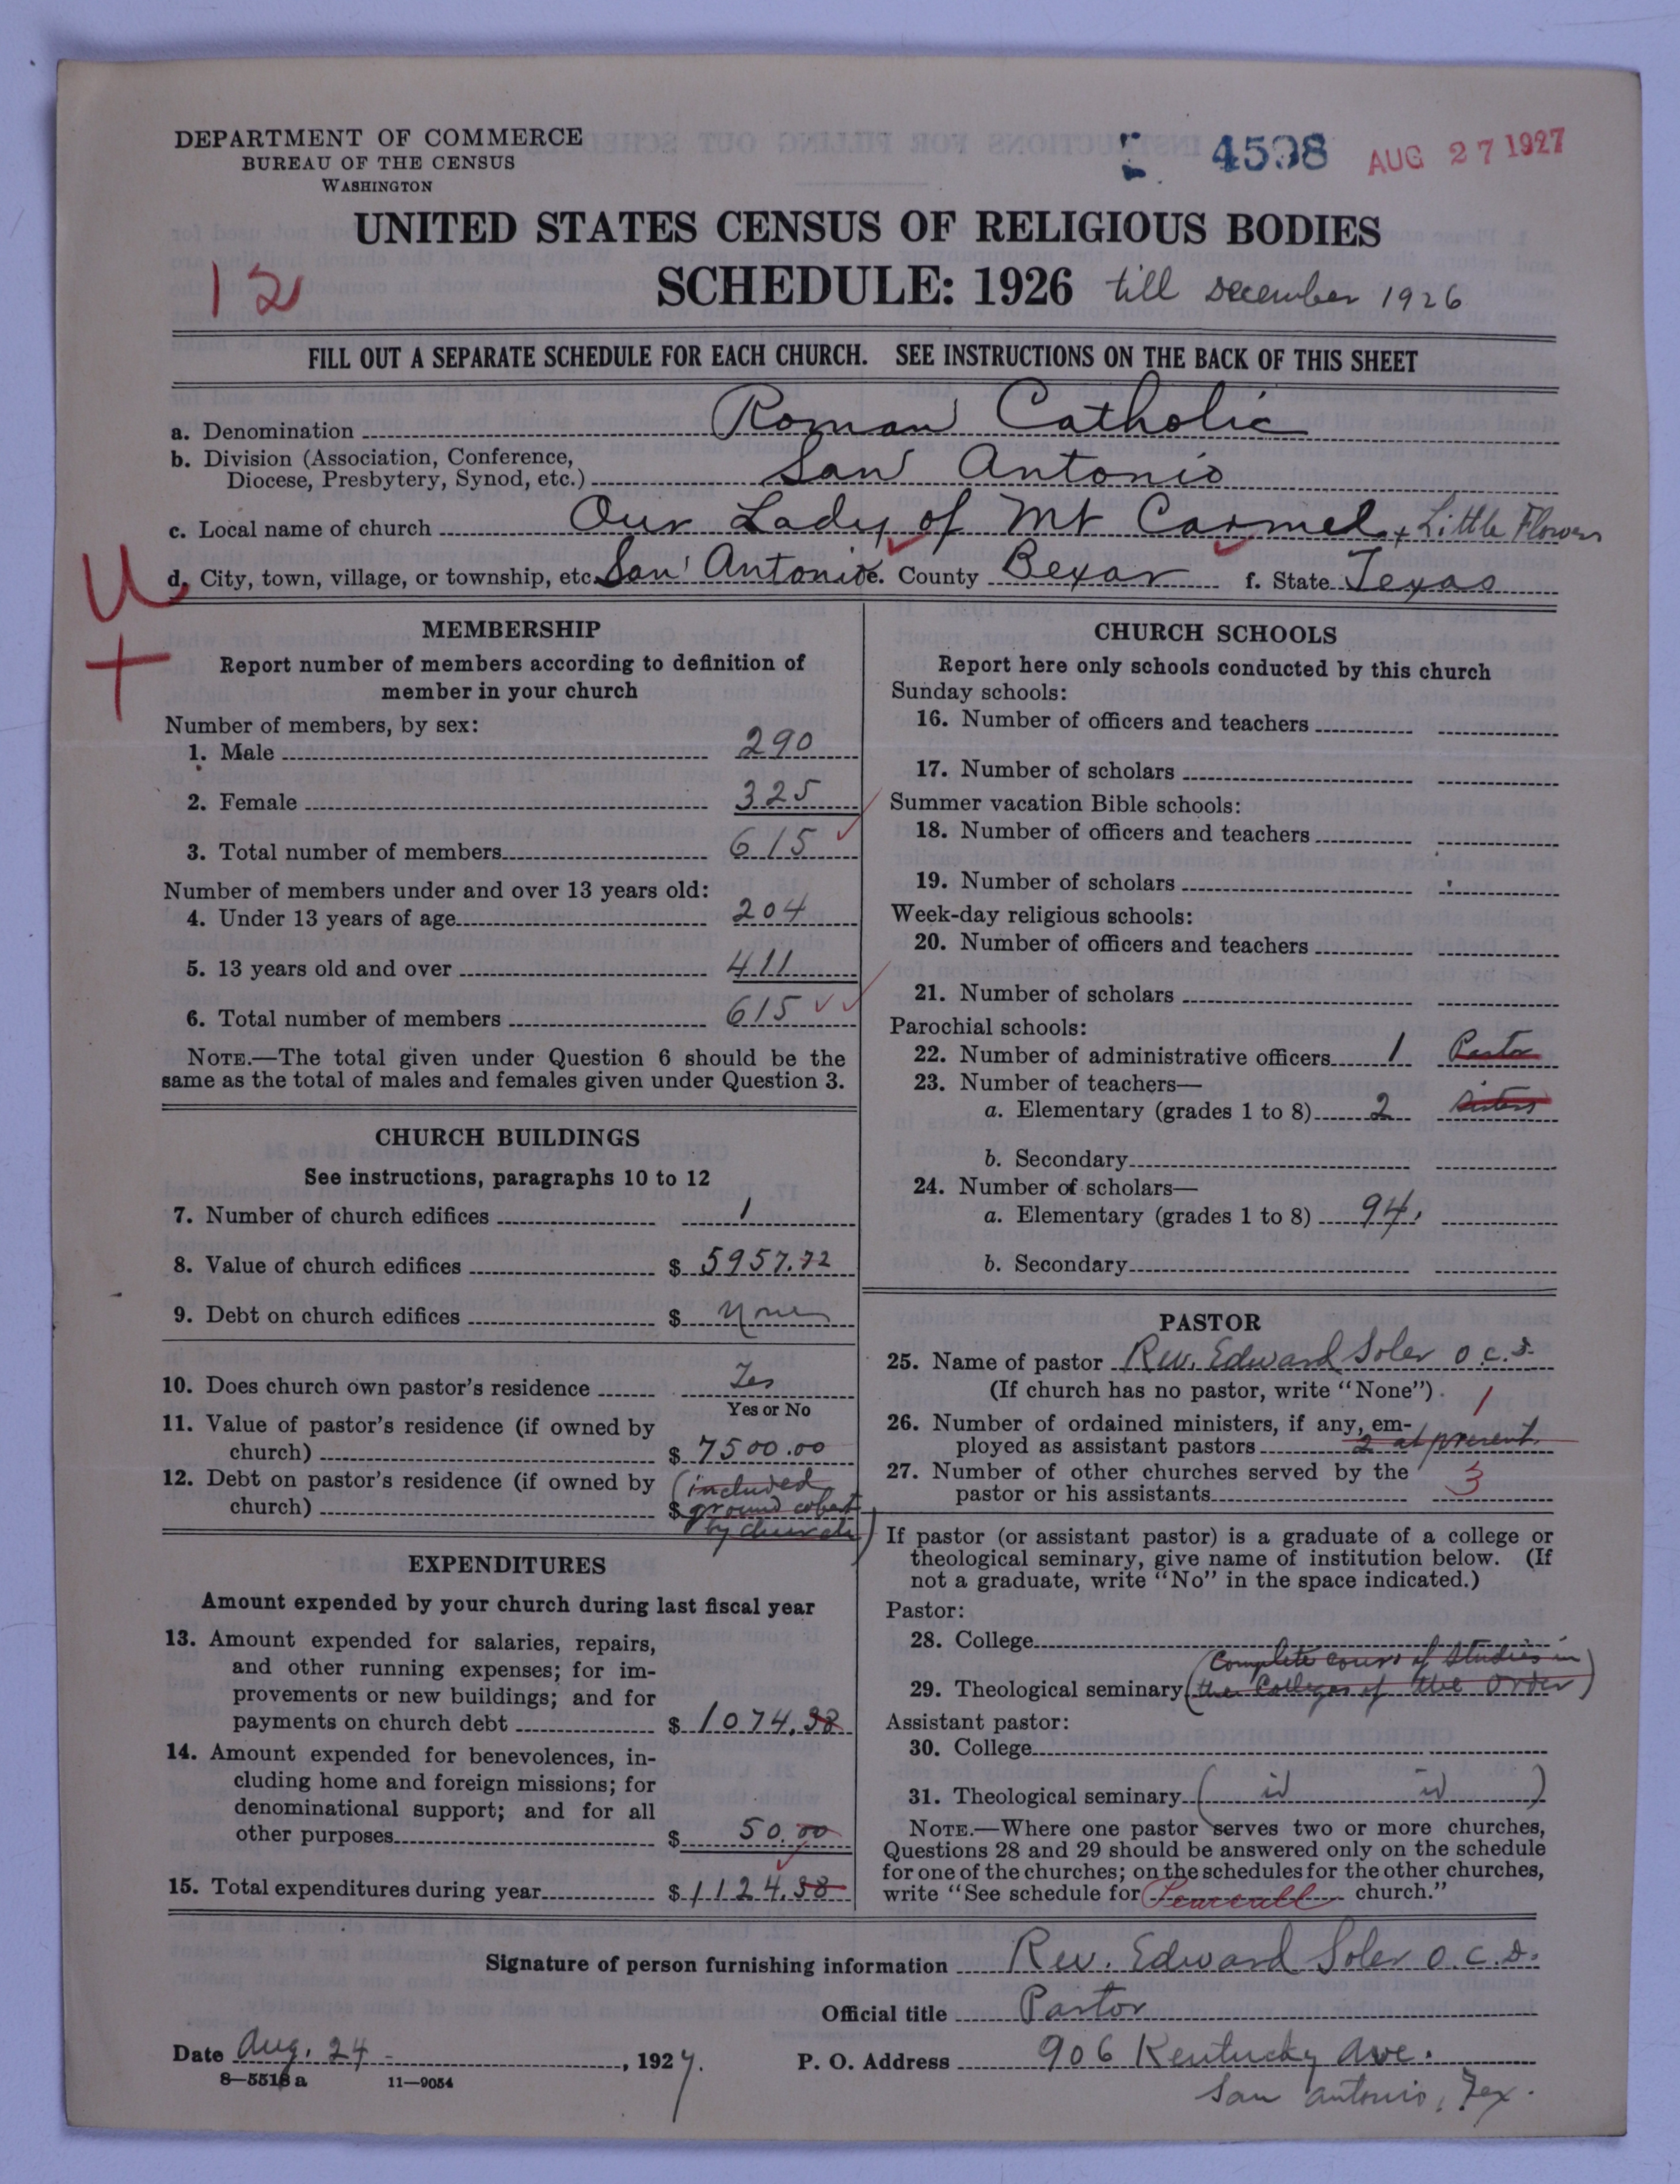 DEPARTMENT OF COMMERCE
BUREAU OF THE CENSUS
WASHINGTON
4598 AUG 27 1927
UNITED STATES CENSUS OF RELIGIOUS BODIES
12
SCHEDULE: 1926 till December 1926
FILL OUT A SEPARATE SCHEDULE FOR EACH CHURCH. SEE INSTRUCTIONS ON THE BACK OF THIS SHEET
a. Denomination Roman Catholic
b. Division (Association, Conference,
Diocese, Presbytery, Synod, etc.) San Antonio
c. Local name of church Our Lady of Mt Carmel + Little Flower
U
d. City, town, village, or township, etc. San Antonio e. County Bexar f. State Texas
MEMBERSHIP
Report number of members according to definition of
member in your church
Number of members, by sex:
1. Male 290
2. Female 325
3. Total number of members 615
Number of members under and over 13 years old:
4. Under 13 years of age 204
5. 13 years old and over 411
6. Total number of members 615
NOTE.—The total given under Question 6 should be the
same as the total of males and females given under Question 3.
CHURCH BUILDINGS
See instructions, paragraphs 10 to 12
7. Number of church edifices 1
8. Value of church edifices $ 5957.72
9. Debt on church edifices $ None
10. Does church own pastor's residence Yes
Yes or No
11. Value of pastor's residence (if owned by
church) $ 7500.00
12. Debt on pastor's residence (if owned by (included
church) $ ground
by church)
EXPENDITURES
Amount expended by your church during last fiscal year
13. Amount expended for salaries, repairs,
and other running expenses; for im-
provements or new buildings; and for
payments on church debt $ 1074.38
14. Amount expended for benevolences, in-
cluding home and foreign missions; for
denominational support; and for all
other purposes $ 50.00
15. Total expenditures during year $ 1124.38
CHURCH SCHOOLS
Report here only schools conducted by this church
Sunday schools:
16. Number of officers and teachers
17. Number of scholars
Summer vacation Bible schools:
18. Number of officers and teachers
19. Number of scholars
Week-day religious schools:
20. Number of officers and teachers
21. Number of scholars
Parochial schools:
22. Number of administrative officers 1 Pastor
23. Number of teachers—
a. Elementary (grades 1 to 8) 2 Sisters
b. Secondary
24. Number of scholars—
a. Elementary (grades 1 to 8) 94.
b. Secondary
PASTOR
25. Name of pastor Rev. Edward Soler O.C.D.
(If church has no pastor, write "None") 1
26. Number of ordained ministers, if any, em-
ployed as assistant pastors 2 at present.
27. Number of other churches served by the
pastor or his assistants 3
If pastor (or assistant pastor) is a graduate of a college or
theological seminary, give name of institution below. (If
not a graduate, write "No" in the space indicated.)
Pastor:
28. College
(Complete course of studies in
29. Theological seminary the Colleges of the Order)
Assistant pastor:
30. College
31. Theological seminary ( id id )
NOTE.—Where one pastor serves two or more churches,
Questions 28 and 29 should be answered only on the schedule
for one of the churches; on the schedules for the other churches,
write "See schedule for Pearsall church."
Signature of person furnishing information Rev. Edward Soler O.C.D.
Official title Pastor
Date Aug. 24 - , 1927. P. O. Address 906 Kentucky Ave.
8—5518 a 11—9054 San Antonio, Tex.